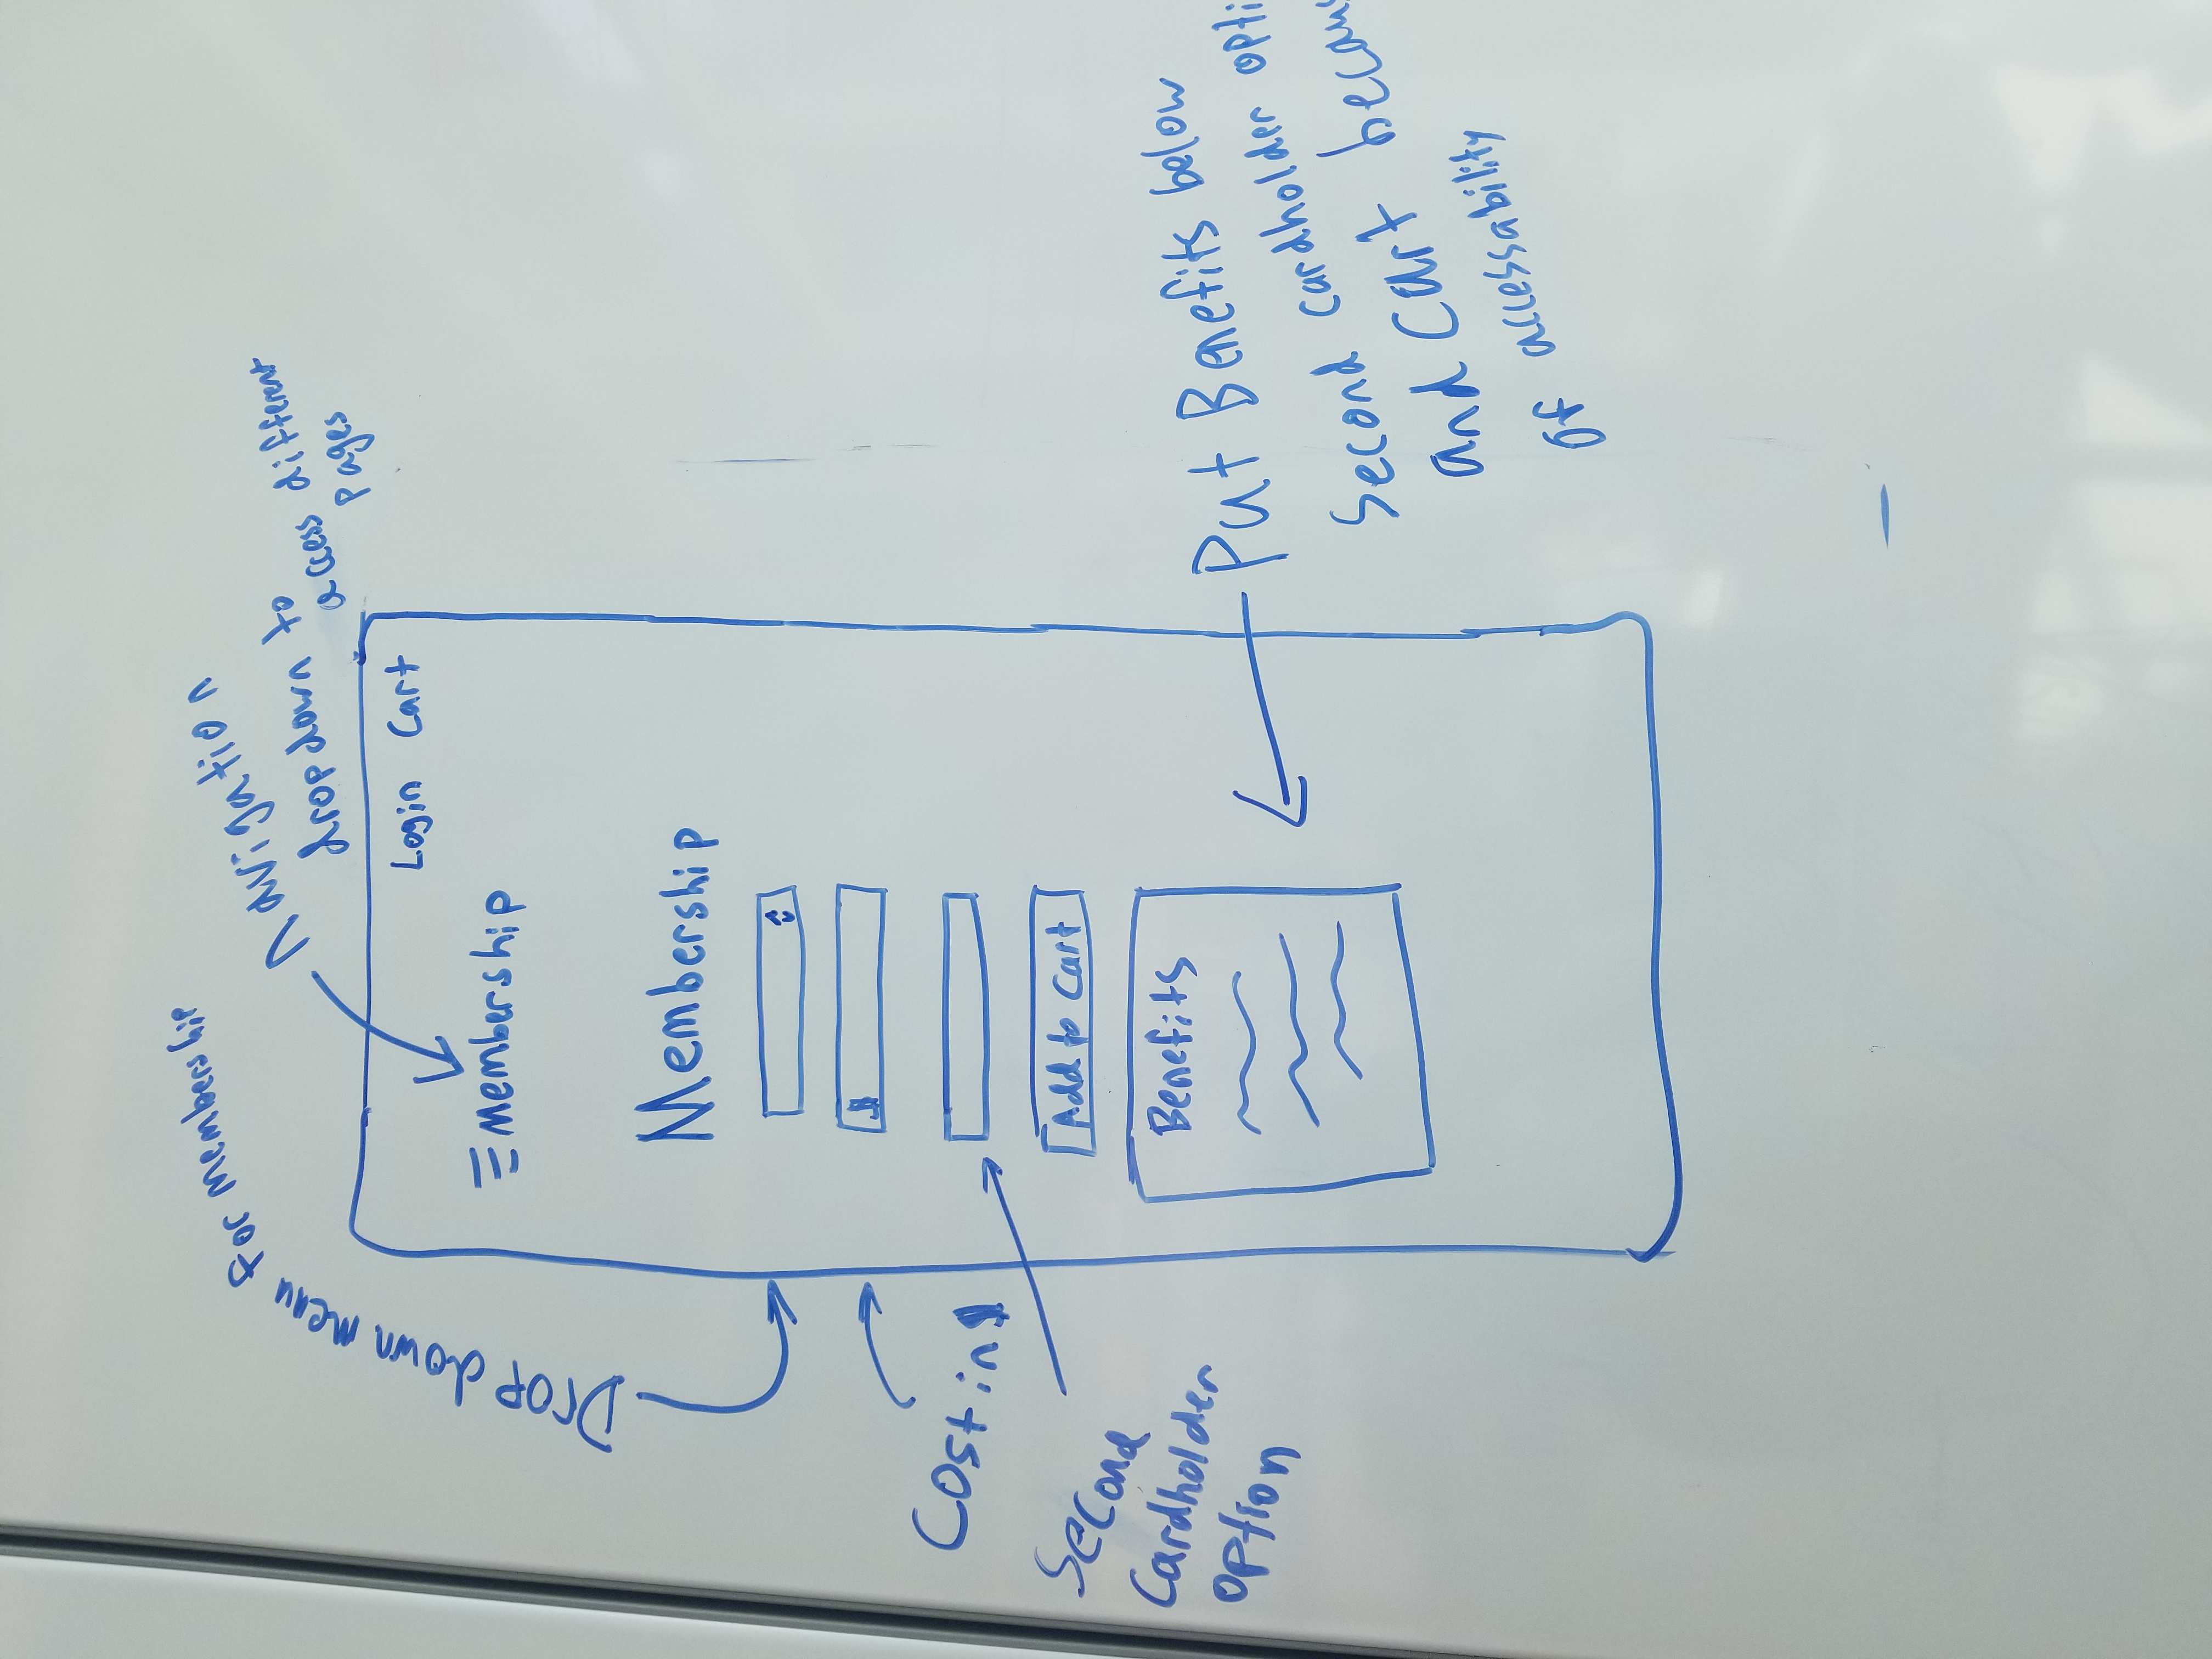 Drop down menu for membership
Navigation
dropdown to
access different
pages
Login Cart
Membership
Membership
$
Cost in $
Second
Cardholder
option
Add to Cart
Benefits
Put Benefits below
Second cardholder opti
and Cart becaus
of accessability